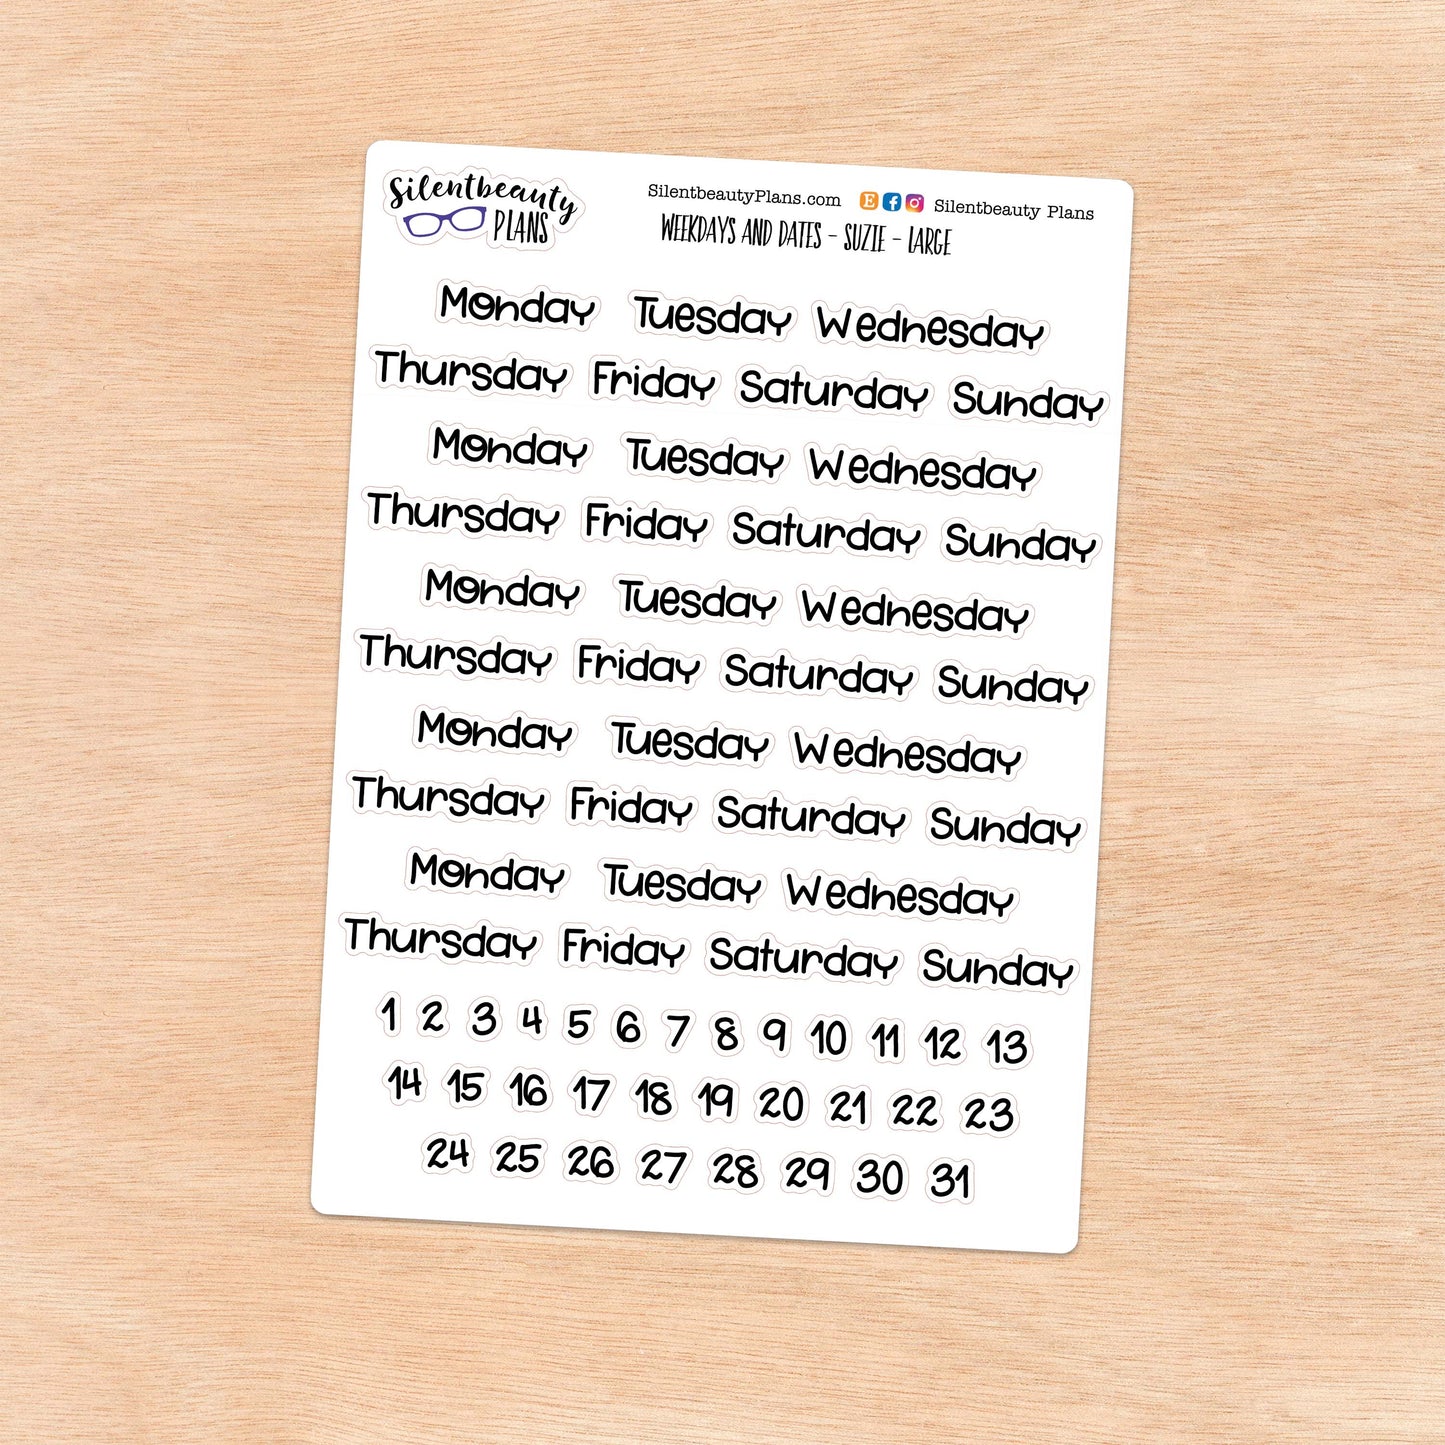 Silentbeauty
PLANS
SilentbeautyPlans.com Silentbeauty Plans
WEEKDAYS AND DATES - SUZIE - LARGE
Monday Tuesday Wednesday
Thursday Friday Saturday Sunday
Monday Tuesday Wednesday
Thursday Friday Saturday Sunday
Monday Tuesday Wednesday
Thursday Friday Saturday Sunday
Monday Tuesday Wednesday
Thursday Friday Saturday Sunday
Monday Tuesday Wednesday
Thursday Friday Saturday Sunday
1 2 3 4 5 6 7 8 9 10 11 12 13
14 15 16 17 18 19 20 21 22 23
24 25 26 27 28 29 30 31